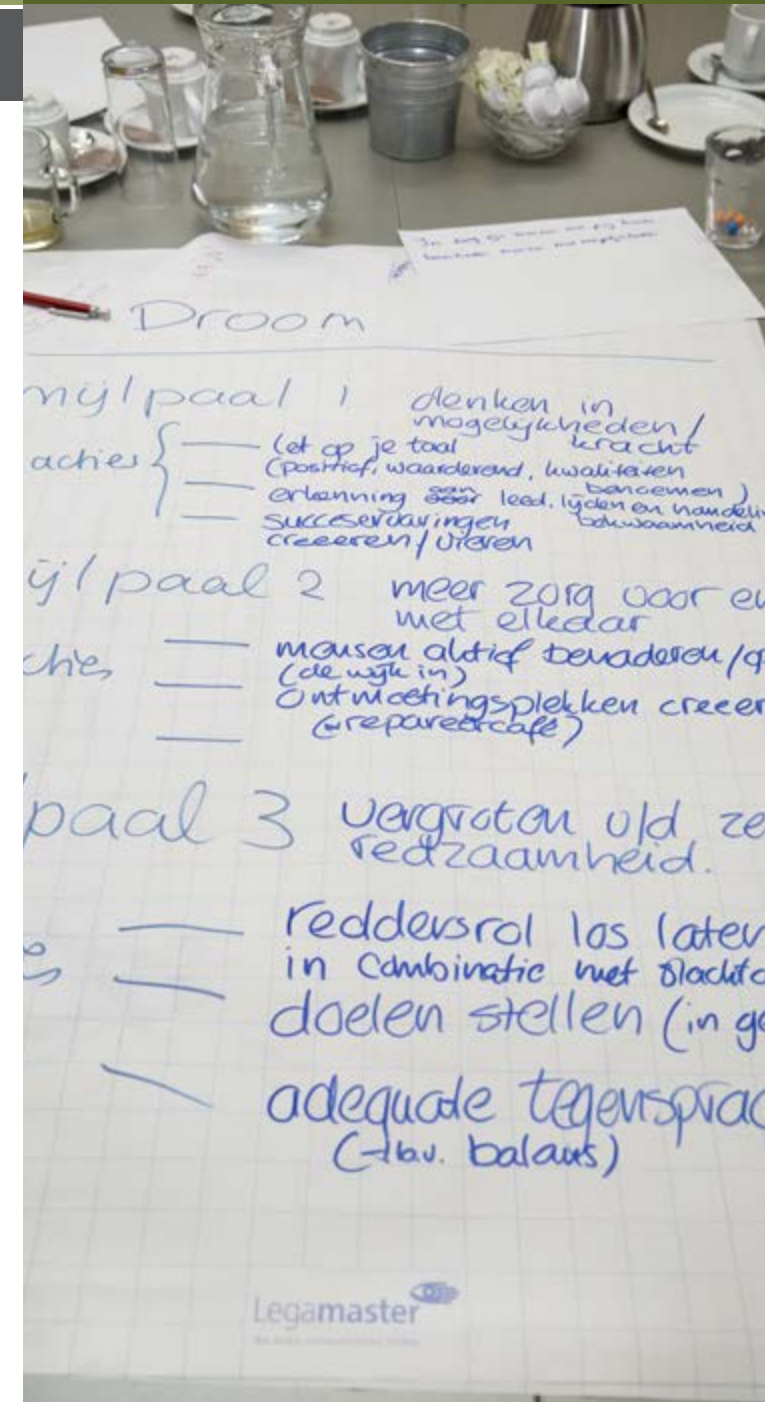 Droom
mijlpaal 1 denken in
mogelijkheden/
kracht
acties
let op je taal
(positief, waarderend, kwaliteiten
benoemen)
erkenning leed, lijden en
bekwaamheid
succeservaringen
creeeren/vieren
ijlpaal 2 meer zorg voor en
met elkaar
cties
mensen aktief benaderen/
(de wijk in)
ontmoetingsplekken creeer
repareercafé)
lpaal 3 vergroten v/d ze
redzaamheid.
reddersrol los laten
in combinatie met
doelen stellen (in ge
adequate tegensprac
(t.b.v. balans)
Legamaster